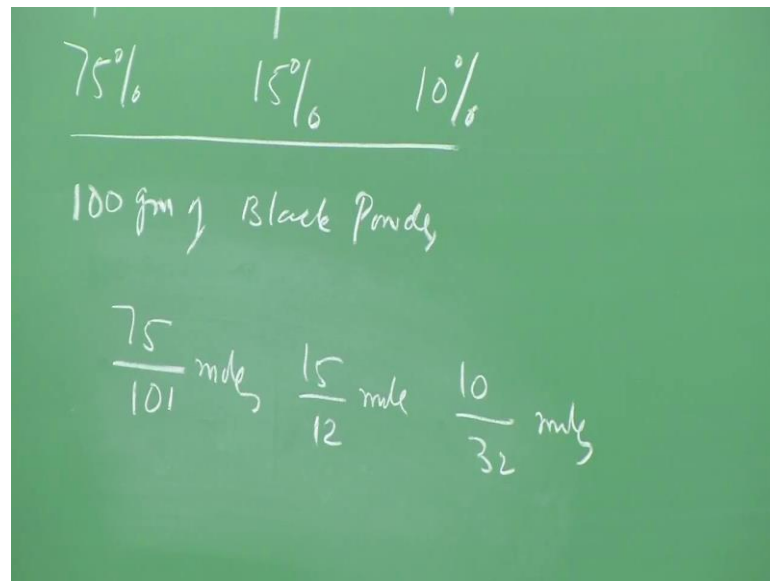 75% 15% 10%
100 gm of Black Powder
75/101 moles 15/12 mole 10/32 moles